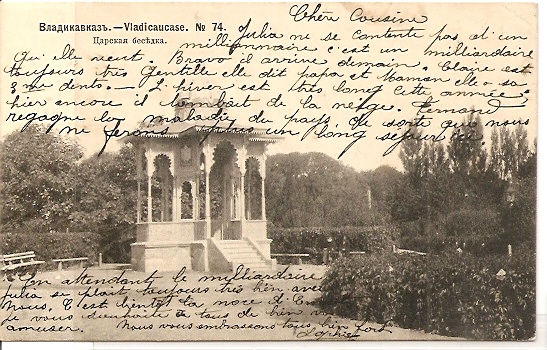 Владикавказъ.—Vladicaucase. № 74.
Царская бесѣдка.
Chère Cousine
Julia ne se contente pas d'un
millionnaire c'est un milliardaire
qu'elle veut. Bravo il arrive demain. Claire est
toujours très gentille elle dit papa et maman elle a sa
3me dent. — L'hiver est très long cette année
hier encore il tombait de la neige. Fernand
regagne la maladie du pays, de sorte que nous
ne ferons pas un long séjour ici.
En attendant le milliardaire
Julia se plait toujours très bien avec
nous. C'est bientôt la noce d'
Je vous souhaite à tous de bien vous
amuser. Nous vous embrassons tous bien fort
Sophie